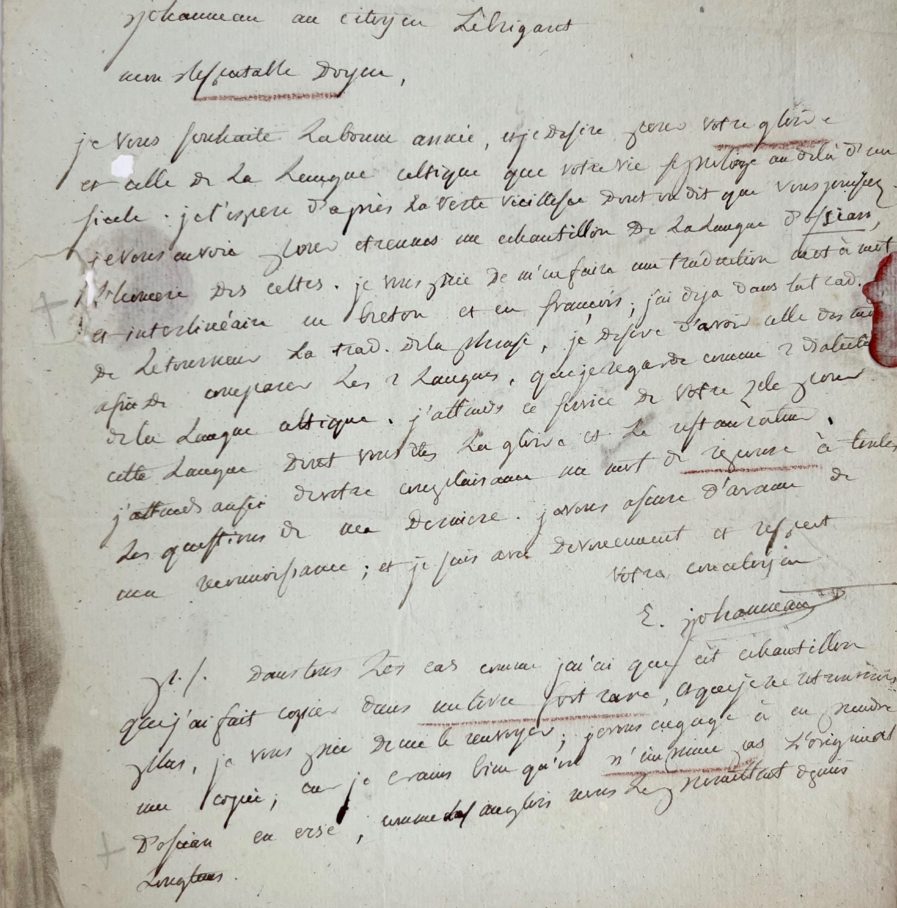 johanneau au citoyen Lebrigant
mon respectable Doyen,
je vous souhaite la bonne année, et je desire pour votre gloire
et celle de la Langue celtique que votre vie se prolonge au delà d'un
siecle. je l'espere d'après la verte vieillesse dont on dit que vous jouissez.
je vous envoie pour etrennes un echantillon de la Langue d'ossian,
l'homere des celtes. je vous prie de m'en faire une traduction mot à mot
et interlinéaire en breton et en françois; j'ai deja dans la trad.
de Letourneur la trad. de la phrase, je desire d'avoir celle des mots
afin de comparer les 2 Langues, que je regarde comme 2 dialectes
de la Langue celtique. j'attends ce service de votre zele pour
cette Langue dont vous êtes la gloire et le restaurateur.
j'attends aussi de votre complaisance un mot de reponse à toutes
les questions de ma derniere. je vous assure d'avance de
ma reconnoissance; et je suis avec devouement et respect
votre concitoyen
E. johanneau
p.s. Dans tous les cas comme je n'ai que cet echantillon
que j'ai fait copier dans un livre fort rare, et que je ne retrouverois
plus, je vous prie de me le renvoyer; je vous engage à en prendre
une copie; car je crains bien qu'on n'imprime pas l'original
d'ossian en erse, comme les anglois nous le promettent depuis
Longtems.